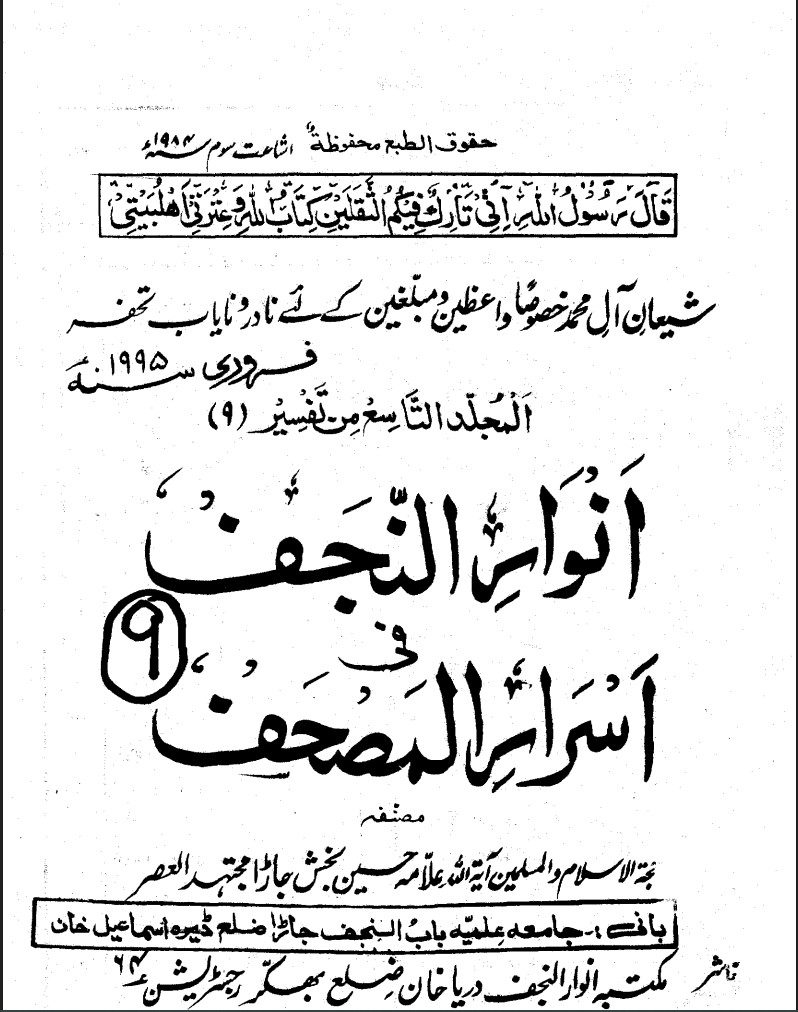 حقوق الطبع محفوظة اشاعت سوم سنہ ۱۹۸۴ء
قَالَ رَسُوْلُ اللّٰهِ اِنِّیْ تَارِكٌ فِیْكُمُ الثَّقَلَیْنِ كِتَابُ اللّٰهِ وَعِتْرَتِیْ اَهْلُبَیْتِیْ
شیعانِ آلِ محمدؐ خصوصًا واعظین و مبلّغین کے لئے نادر و نایاب تحفہ
فروری سنہ ۱۹۹۵ء
اَلْمُجلّد التَّاسِعُ مِن تَفْسِیْرِ (۹)
اَنْوَارِ النَّجَفْ
۹
فی
اَسْرَارِ الْمَصْحَفْ
مصنفہ
حجۃ الاسلام والمسلمین آیۃ اللہ علّامہ حسین بخش جاڑا مجتہد العصر
بانی :۔ جامعہ علمیہ بابُ النجف جاڑا ضلع ڈیرہ اسماعیل خان
ناشر مکتبہ انوار النجف دریا خان ضلع بھکّر رجسٹریشن ۶۴ء